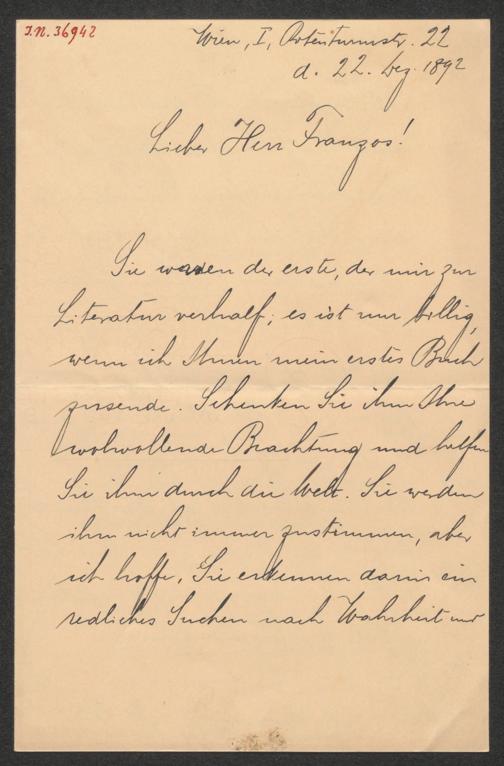 I.N. 36942
Wien, I, Rotenturmstr. 22
d. 22. Dez. 1892
Lieber Herr Franzos!
Sie waren der erste, der mir zur
Literatur verhalf; es ist nur billig,
wenn ich Ihnen mein erstes Buch
zusende. Schenken Sie ihm Ihre
wohlwollende Beachtung und helfen
Sie ihm durch die Welt. Sie werden
ihm nicht immer zustimmen, aber
ich hoffe, Sie erkennen darin ein
redliches Suchen nach Wahrheit und